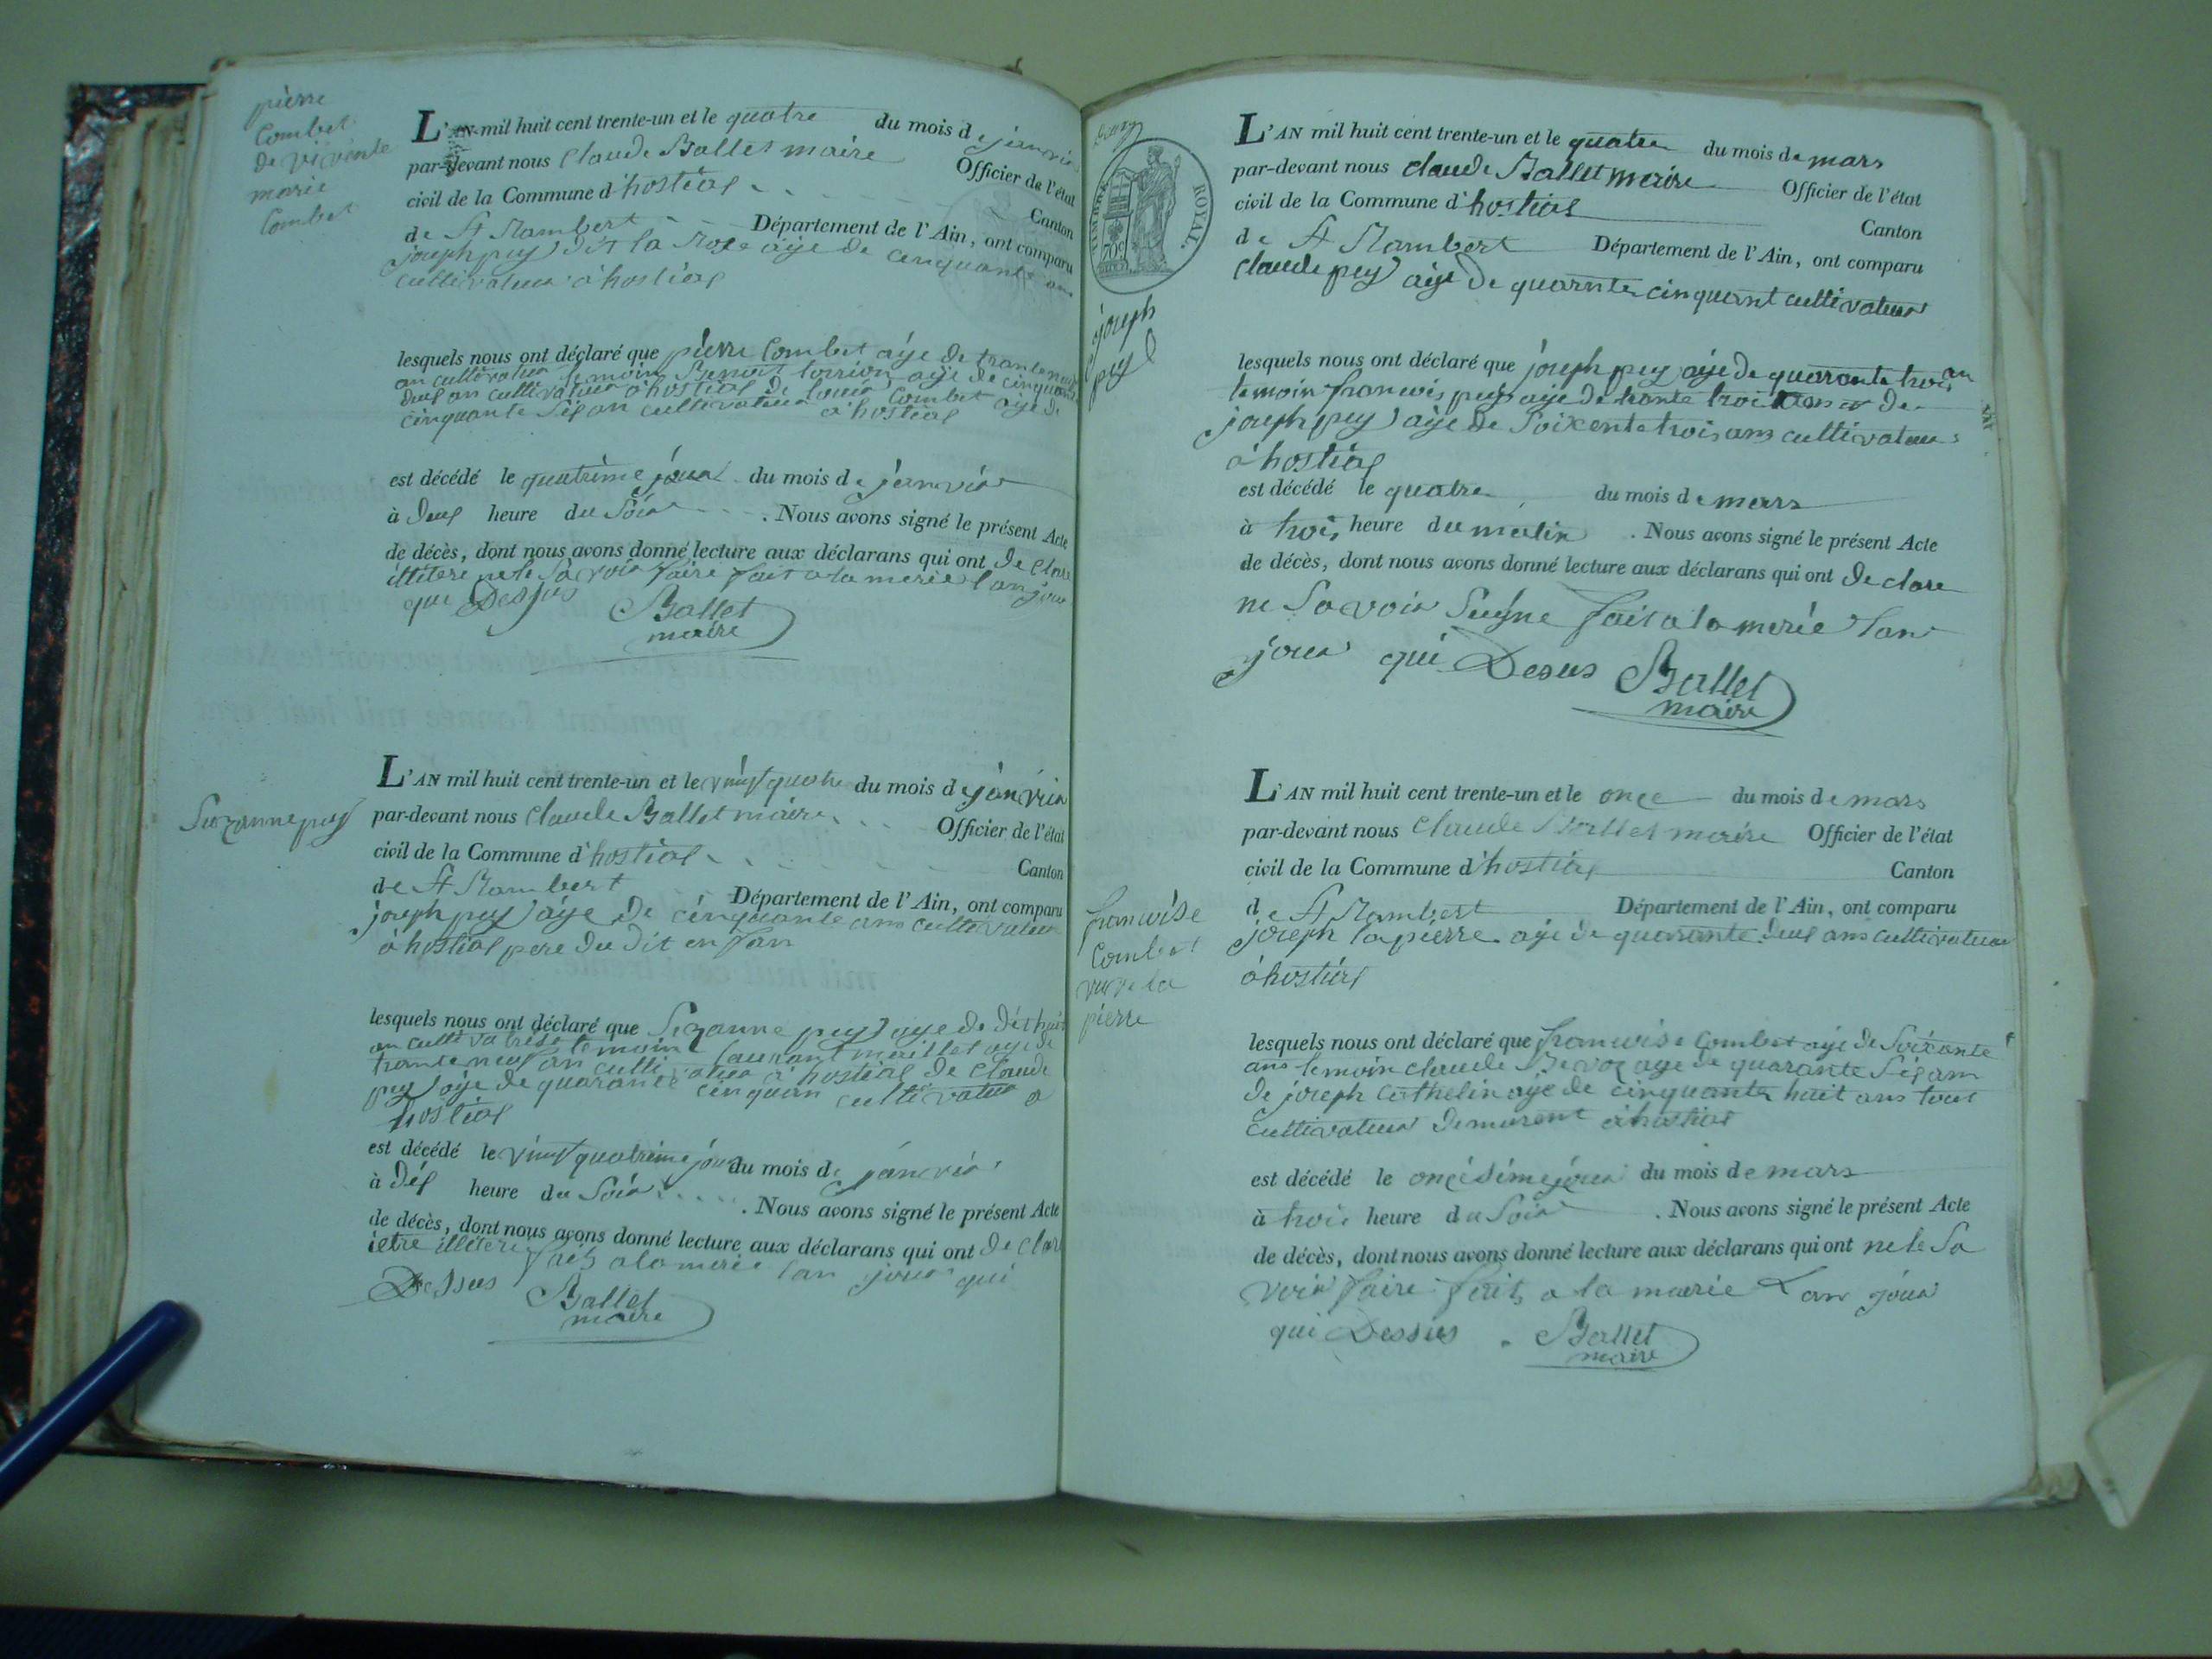 pierre
Combet
de vivente
marie
Combet
L'AN mil huit cent trente-un et le quatre du mois de janvier
par-devant nous Claude Ballet maire Officier de l'état
civil de la Commune d'hostias Canton
de St Rambert Département de l'Ain, ont comparu
joseph puy dit la Rose aÿe de cinquante ans
cultivateur a hostias
lesquels nous ont déclaré que pierre Combet aÿe de trante neuf
an cultivateur temoin Benoit aÿe de cinquante
deus an cultivateur a hostias de louis Combet aÿe de
cinquante sis an cultivateur a hostias
est décédé le quatrième jour du mois de janvier
à deus heure du Soir . Nous avons signé le présent Acte
de décès, dont nous avons donné lecture aux déclarans qui ont declare
illitere ne le savoir faire fait a la merie lan jour
qui Dessus Ballet
maire
Suzanne puy
L'AN mil huit cent trente-un et le vint quatre du mois de janvier
par-devant nous Claude Ballet maire Officier de l'état
civil de la Commune d'hostias Canton
de St Rambert Département de l'Ain, ont comparu
joseph puy aÿe de cinquante ans cultivateur
a hostias pere du dit enfan
lesquels nous ont déclaré que Suzanne puy aye de dishuit
an cultivatrise temoin laurant maillet aye de
trante neuf an cultivateur a hostias de Claude
puy aÿe de quarante cinquan cultivateur a
hostias
est décédé le vint quatrieme jour du mois de janvier
à dis heure du Soir . Nous avons signé le présent Acte
de décès, dont nous avons donné lecture aux déclarans qui ont declare
ietre illitere fait a la merie lan jour qui
Dessus Ballet
maire
TIMBRE ROYAL.
70c
joseph
puy
L'AN mil huit cent trente-un et le quatre du mois de mars
par-devant nous claude Ballet maire Officier de l'état
civil de la Commune d'hostias Canton
de St Rambert Département de l'Ain, ont comparu
Claude puy aÿe de quarnte cinquant cultivateur
lesquels nous ont déclaré que joseph puy aÿe de quarante trois an
temoin francois puy aÿe de trante trois ans de
joseph puy aÿe de soixente trois ans cultivateur
a hostias
est décédé le quatre du mois de mars
à trois heure du matin . Nous avons signé le présent Acte
de décès, dont nous avons donné lecture aux déclarans qui ont declare
ne Savoir Signe fait a la merie lan
jour qui Desus Ballet
maire
francoise
Combet
vuve la
pierre
L'AN mil huit cent trente-un et le once du mois de mars
par-devant nous Claude Ballet maire Officier de l'état
civil de la Commune d'hostias Canton
de St Rambert Département de l'Ain, ont comparu
joseph lapierre aÿe de quarante deus ans cultivateur
a hostias
lesquels nous ont déclaré que francoise Combet aÿe de Soixante
ans temoin claude aye de quarante sis ans
de joseph Cathelin aye de cinquante huit ans tous
cultivateur demurent a hostias
est décédé le oncisieme jour du mois de mars
à trois heure du Soir . Nous avons signé le présent Acte
de décès, dont nous avons donné lecture aux déclarans qui ont ne le Sa
voir faire fait a la mairie Lan jour
qui Dessus . Ballet
maire